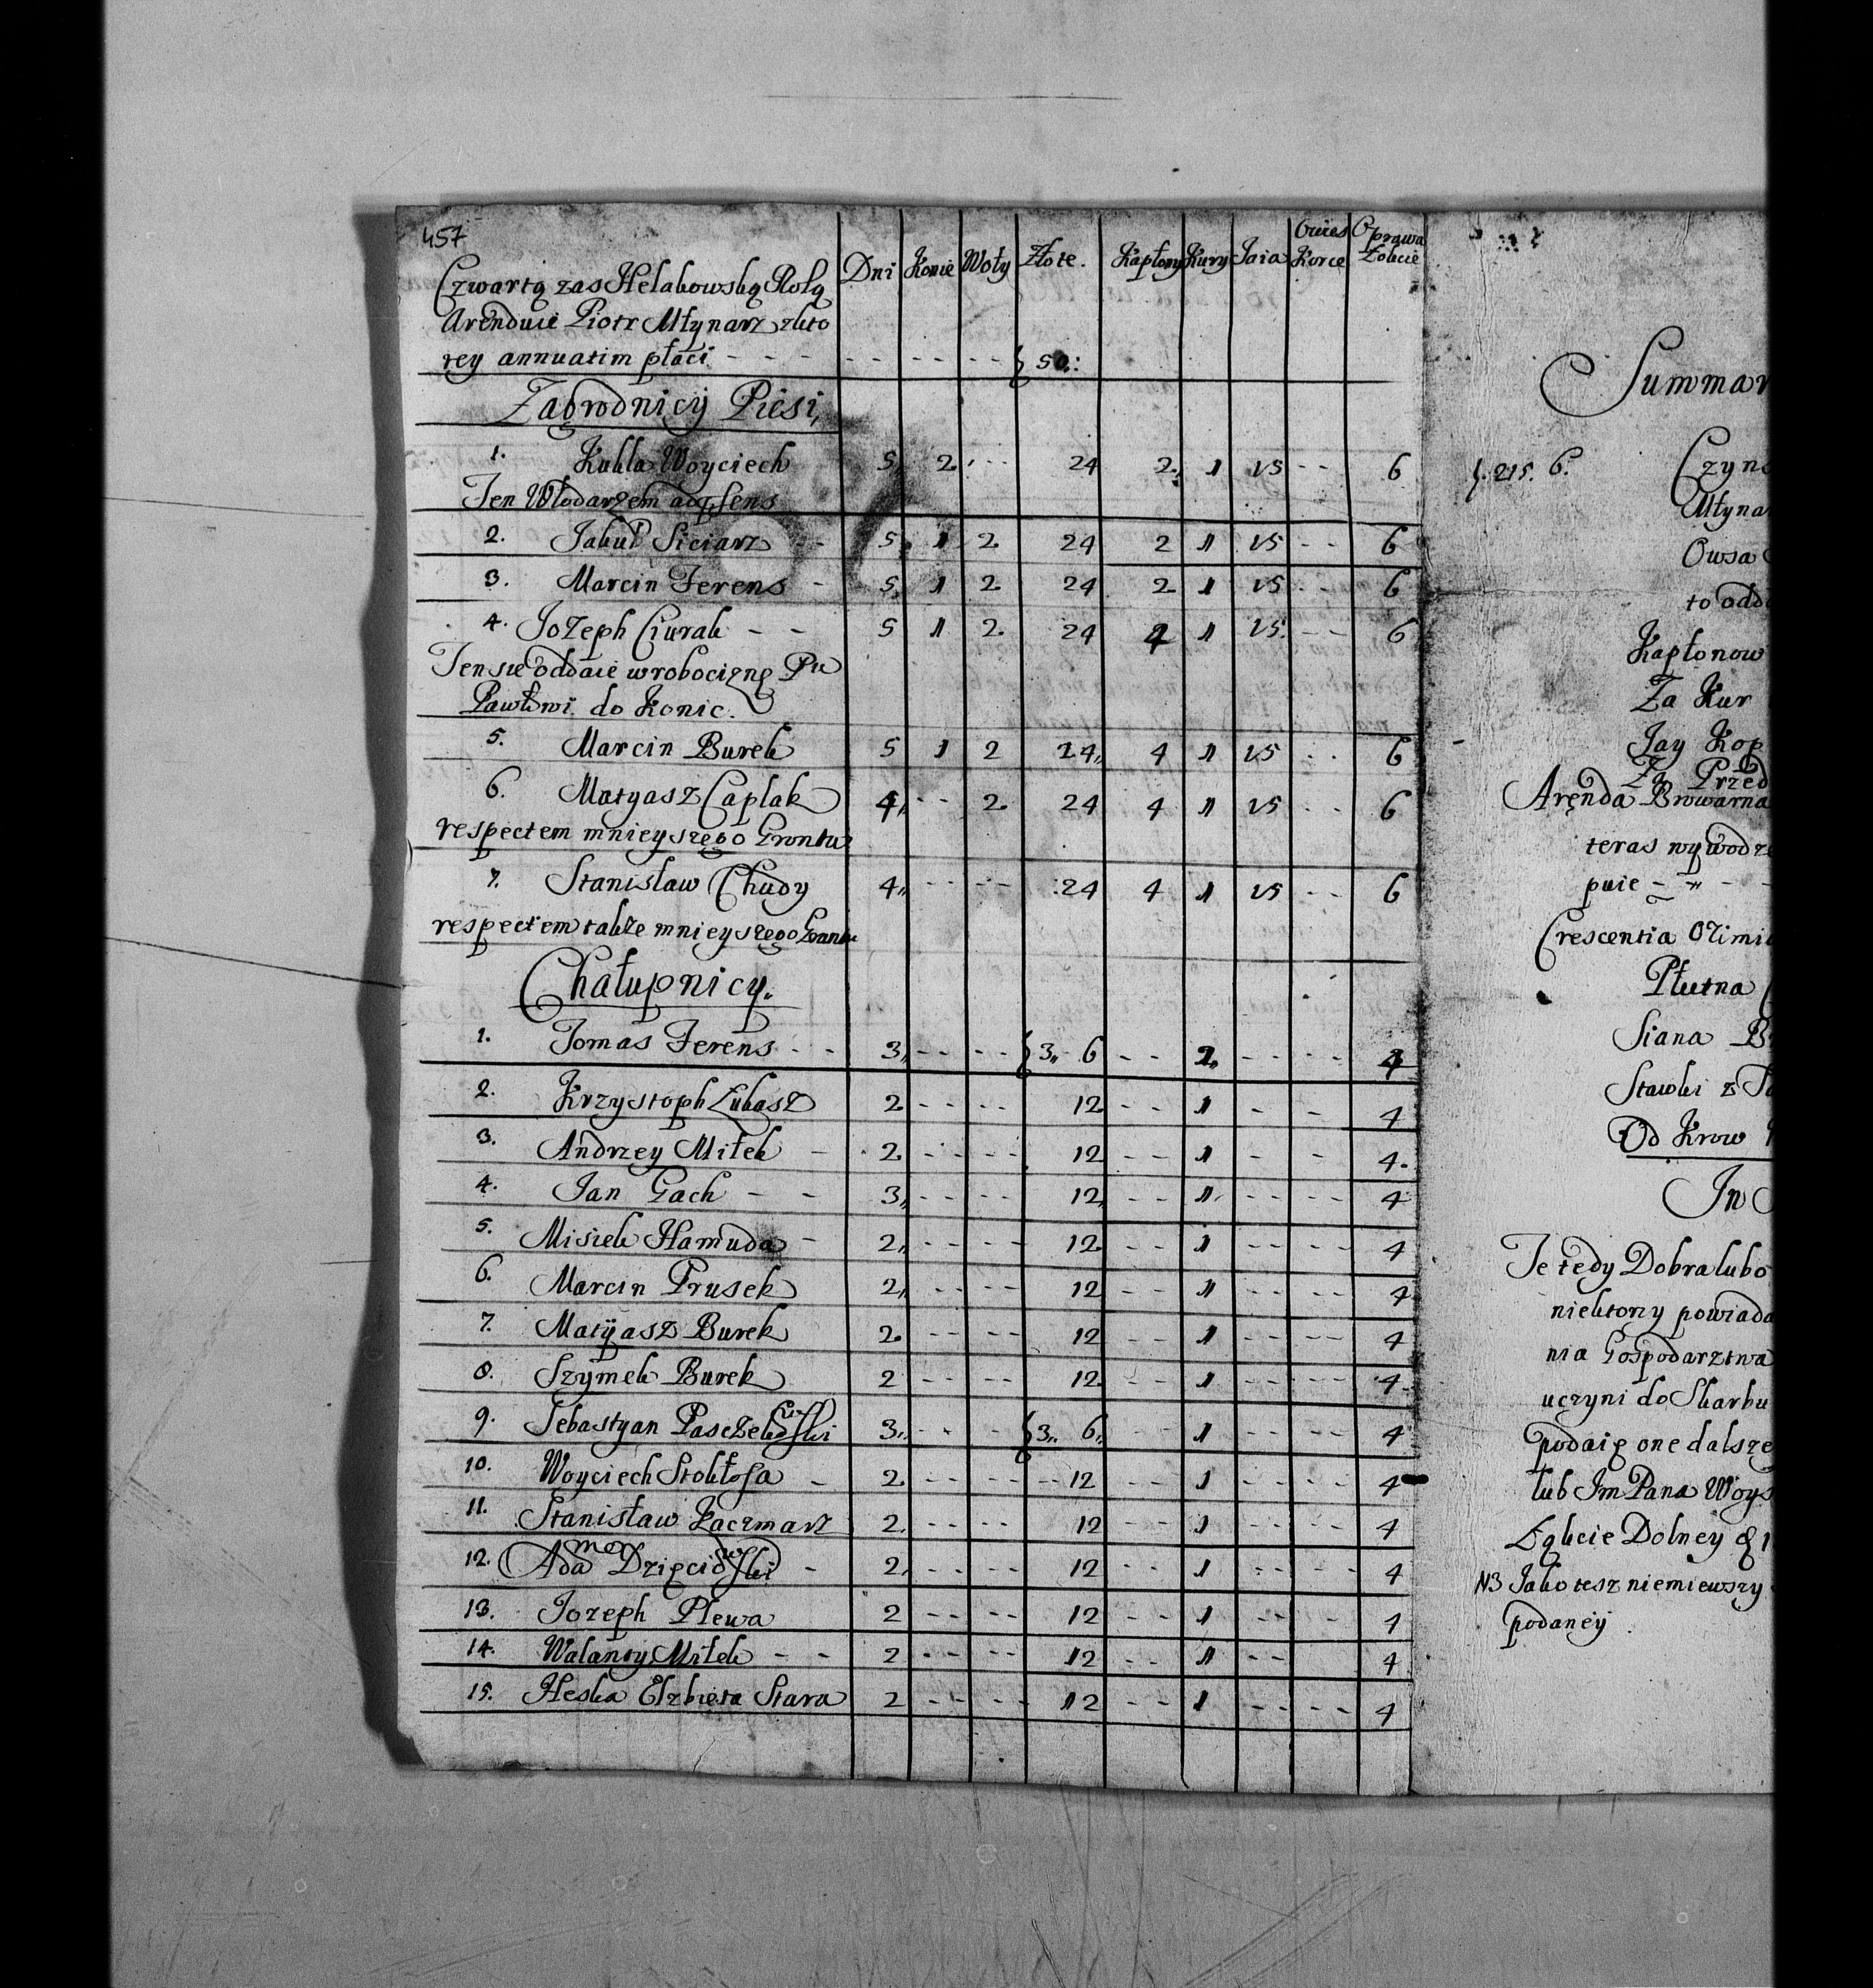 457
Dni Konie Woły Złote. Kapłony Kury Jaia Owies Korce Oprawa Łokcie
Czwartą zas Helakowską Rolą
Arenduie Piotr Młynarz zkto
rey annuatim płaci - - - - - - - - - { 50.:
Zagrodnicy Piesi,
1. Kukla Woyciech 5,, 2. - - - 24 2. 1 15 - - 6
Ten Włodarzem
2. Jakub Siciarz - 5. 1 2. 24 2 1 15 - - 6
3. Marcin Ferens - 5. 1 2 24 2 1 15 - - 6
4. Jozeph Ciurak - - 5 1 2. 24 4 1 15. - - 6
Ten się oddaie w robociznę Pu
Pawłowi do Konic.
5. Marcin Burek 5 1 2 24,, 4 1 15 . . 6
6. Matyasz Caplak 4,, - - 2. 24 4 1 15 - - 6
respectem mnieyszego Grontu
7. Stanislaw Chudy 4,, - - - - 24 4 1 15 - - 6
respectem takze mnieyszego Grontu
Chałupnicy.
1. Tomas Ferens - - - 3,, - - - - { 3,, 6 - - 2,, - - - - 4
2. Krzystoph Łukasz 2. - - - - 12 - - 1 - - 4
3. Andrzey Miłek - 2. - - - - 12 - - 1 - - 4.
4. Jan Gach - - 3,, - - - - 12, - - 1 - - - - 4
5. Misiek Hamuda - 2,, - - - - 12. - - 1 - - - - 4
6. Marcin Prusek 2,, - - - - 12 - - 1 - - - - 4
7. Matyasz Burek 2. - - - - 12 - - 1 - - - - 4
8. Szymek Burek 2 - - - - 12. - - 1 - - - - 4.
9. Sebastyan 3,, - - - { 3,, 6,, - - 1 - - - - 4
10. Woyciech Stokłosa - 2. - - - - 12 - - 1 - - - - 4
11. Stanisław Kaczmarz 2. - - - - 12 - - 1 - - - - 4
12. Adam Dzięciowski - 2. - - - - 12 - - 1 - - - - 4
13. Jozeph Plewa 2 - - - - 12 - - 1 - - - 4
14. Walanty Miłek - - 2 - - - - 12 - - 1 - - 4
15. Heska Elzbieta Stara 2 - - - - 12 - - 1 - - - - 4
Summar
{. 215. 6. Czyns
Młyna
Owsa
to odda
Kapłonow
Za Kur
Jay Kop
Za Przed
Aręnda Browarna
teras wywodze
puie - " - -
Crescentia Ozimi
Płutna
Siana B
Stawki z
Od Krow
In
Te tedy Dobra lubo
niektory powiada
nia Gospodarztwa
uczyni do Skarbu
podaię one dalsze
lub Im Pana Woys
Łąkcie Dolney &
N3 Jako tesz niemiewszy
podaney